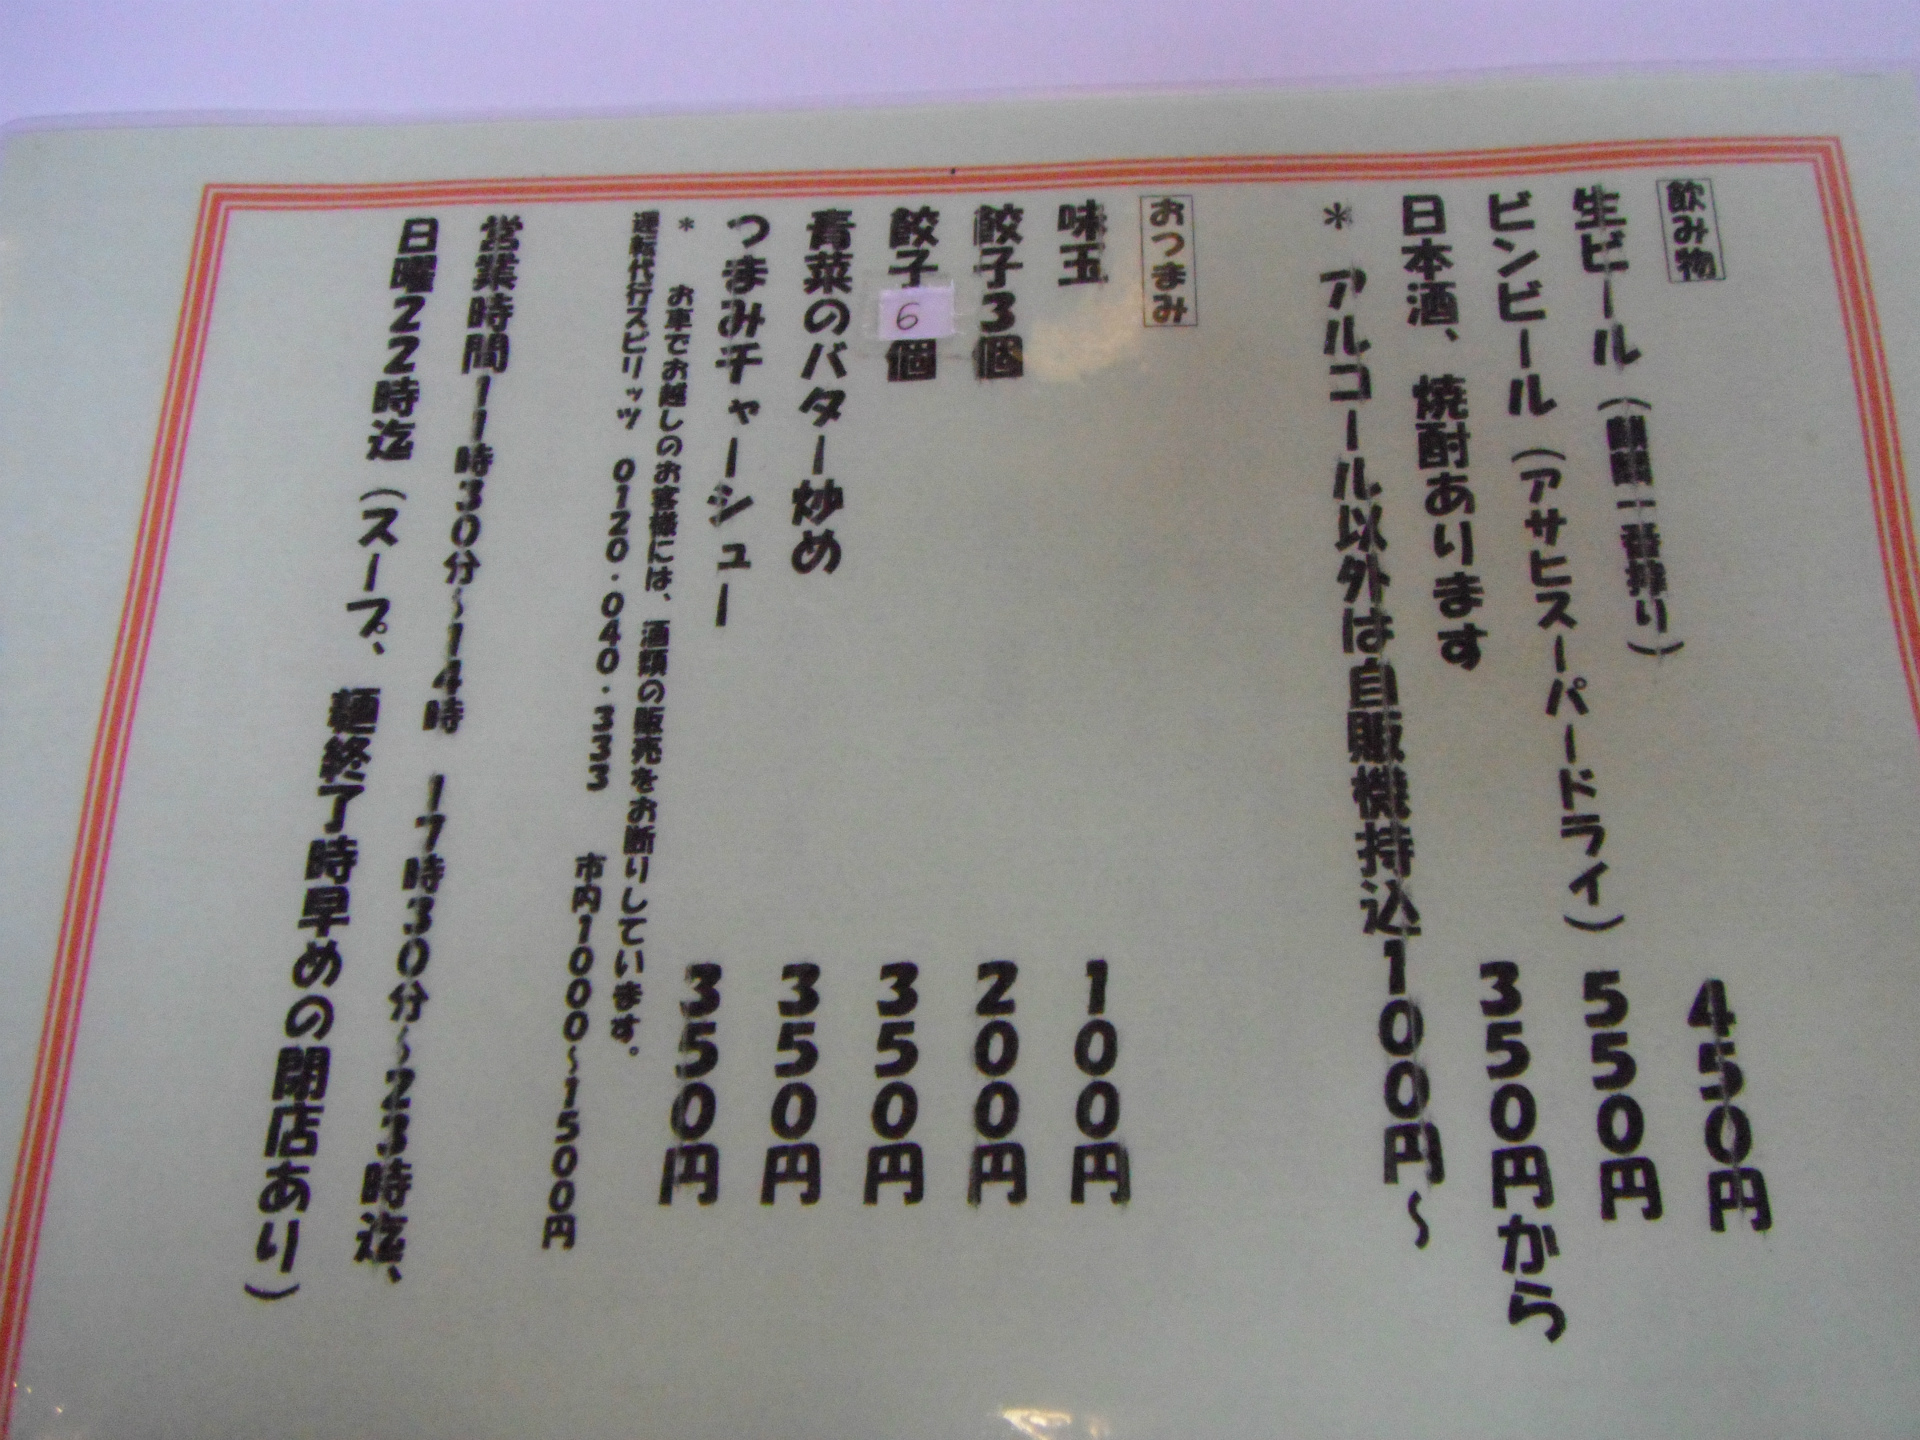 飲み物
生ビール（麒麟一番搾り） 450円
ビンビール（アサヒスーパードライ） 550円
日本酒、焼酎あります 350円から
＊ アルコール以外は自販機持込100円～
おつまみ
味玉 100円
餃子3個 200円
餃子6個 350円
青菜のバター炒め 350円
つまみチャーシュー 350円
＊ お車でお越しのお客様には、酒類の販売をお断りしています。
運転代行スピリッツ 0120・040・333 市内1000～1500円
営業時間11時30分～14時 17時30分～23時迄、
日曜22時迄（スープ、麺終了時早めの閉店あり）